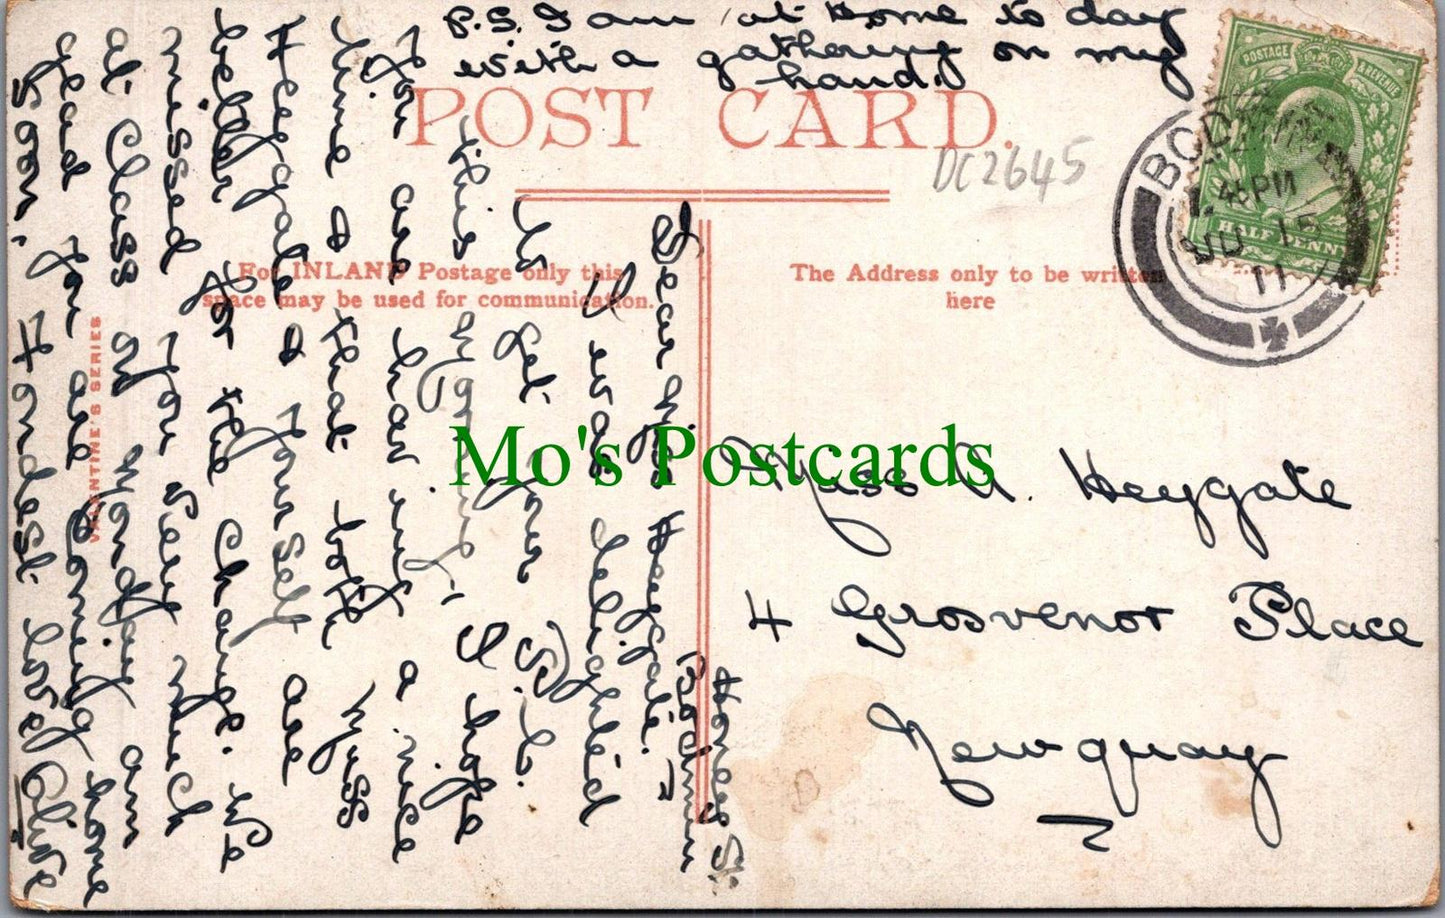 P.S. I am at Home to day
with a gathering on my
hand.
POST CARD.
DC2645
For INLAND Postage only this
space may be used for communication.
The Address only to be written
here
VALENTINE'S SERIES
Honey St.
Bodmin
Dear Miss Heygate.
I was delighted
to get your
this morning. I hope
you are having a nice
time & that both Miss
Heygate & yourself are
better for the change. We
missed you very much
at Class on Monday am
glad you are coming home
soon. Fondest love Olive
Miss A. Heygate
4 Grosvenor Place
Newquay
POSTAGE & REVENUE
HALF PENNY
BOD
45PM
15
11
Mo's Postcards